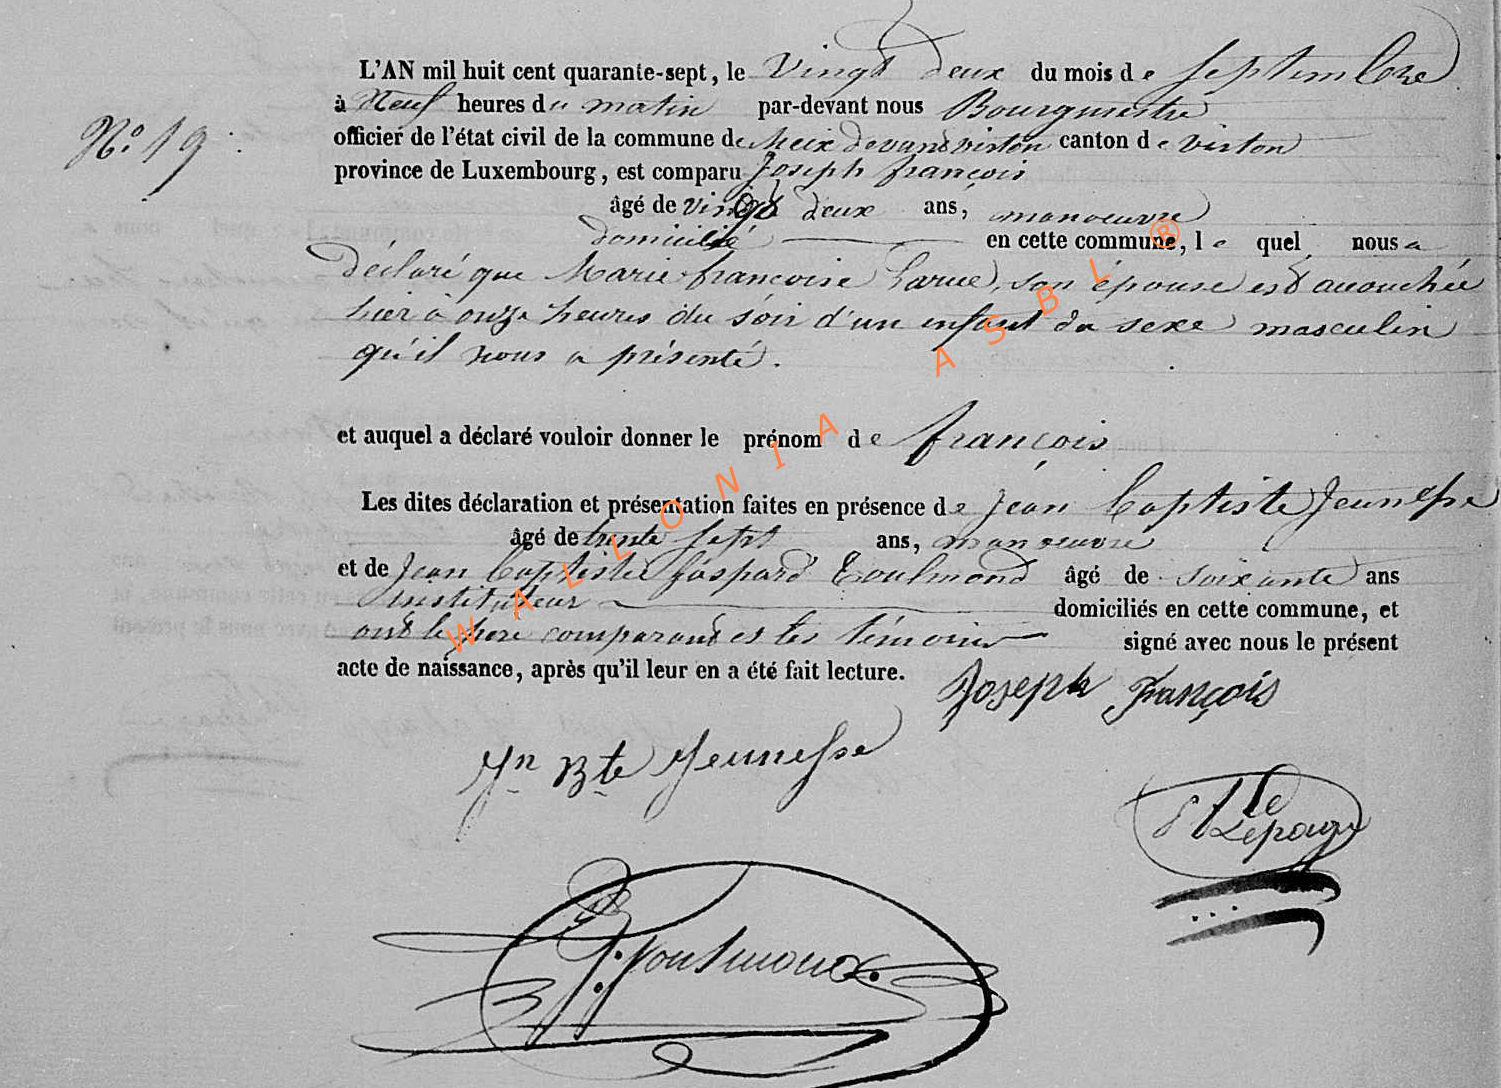 L'AN mil huit cent quarante-sept, le Vingt deux du mois de septembre
à Neuf heures du matin par-devant nous Bourgmestre
N° 19
officier de l'état civil de la commune de Meix devant virton canton de virton
province de Luxembourg, est comparu Joseph françois
âgé de vingt deux ans, manoeuvre
domicilié en cette commune, le quel nous a
déclaré que Marie françoise Larue, son épouse est accouchée
hier à onze heures du soir d'un enfant du sexe masculin
qu'il nous a présenté.
et auquel a déclaré vouloir donner le prénom de françois
Les dites déclaration et présentation faites en présence de jean baptiste Jeunesse
âgé de trente sept ans, manoeuvre
et de Jean baptiste gaspard Toulmond âgé de soixante ans
instituteur domiciliés en cette commune, et
ont le pere comparant et les témoins signé avec nous le présent
acte de naissance, après qu'il leur en a été fait lecture.
Joseph François
Jn Bte Jeunesse
Toulmond.
WALLONIA ASBL ®